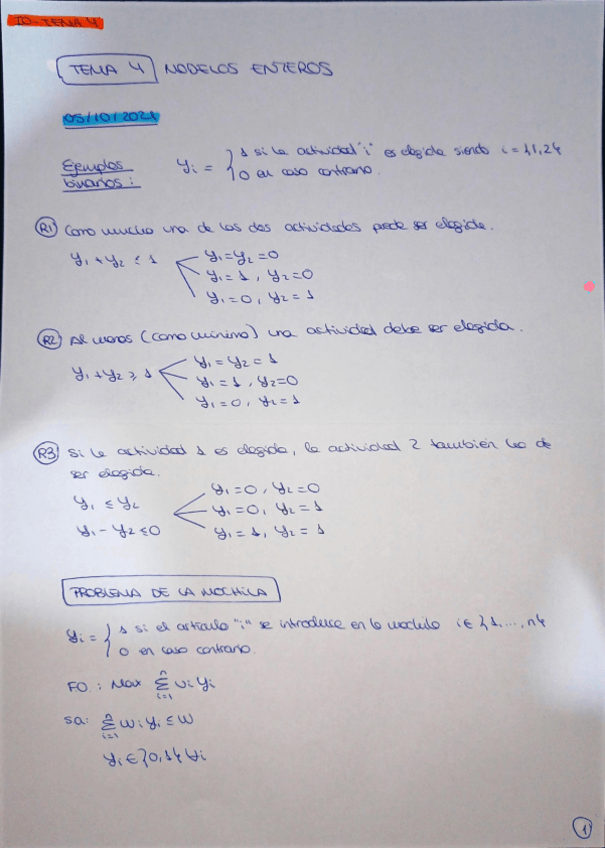 IO-TEMA 4
TEMA 4 MODELOS ENTEROS
05/10/2021
Ejemplos binarios: yᵢ = { 1 si la actividad "i" es elegida siendo i = {1,2}
0 en caso contrario.
R1 Como mucho una de las dos actividades puede ser elegida.
y₁ + y₂ ≤ 1
y₁ = y₂ = 0
y₁ = 1, y₂ = 0
y₁ = 0, y₂ = 1
R2 Al menos (como mínimo) una actividad debe ser elegida.
y₁ + y₂ ≥ 1
y₁ = y₂ = 1
y₁ = 1, y₂ = 0
y₁ = 0, y₂ = 1
R3 Si la actividad 1 es elegida, la actividad 2 también ha de
ser elegida.
y₁ ≤ y₂
y₁ - y₂ ≤ 0
y₁ = 0, y₂ = 0
y₁ = 0, y₂ = 1
y₁ = 1, y₂ = 1
PROBLEMA DE LA MOCHILA
yᵢ = { 1 si el artículo "i" se introduce en la mochila i ∈ {1, ..., n}
0 en caso contrario.
FO.: Max ∑ᵢ₌₁ⁿ vᵢ yᵢ
sa: ∑ᵢ₌₁ⁿ wᵢ yᵢ ≤ W
yᵢ ∈ {0,1} ∀i
1